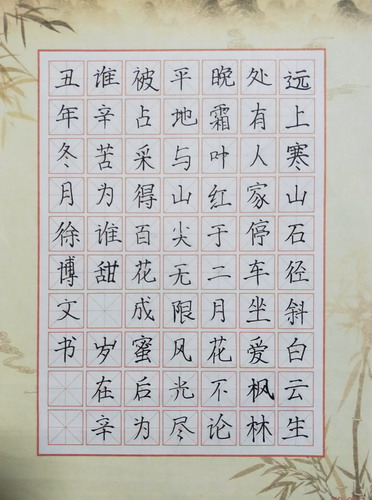 远上寒山石径斜白云生
处有人家停车坐爱枫林
晚霜叶红于二月花不论
平地与山尖无限风光尽
被占采得百花成蜜后为
谁辛苦为谁甜 岁在辛
丑年冬月徐博文书